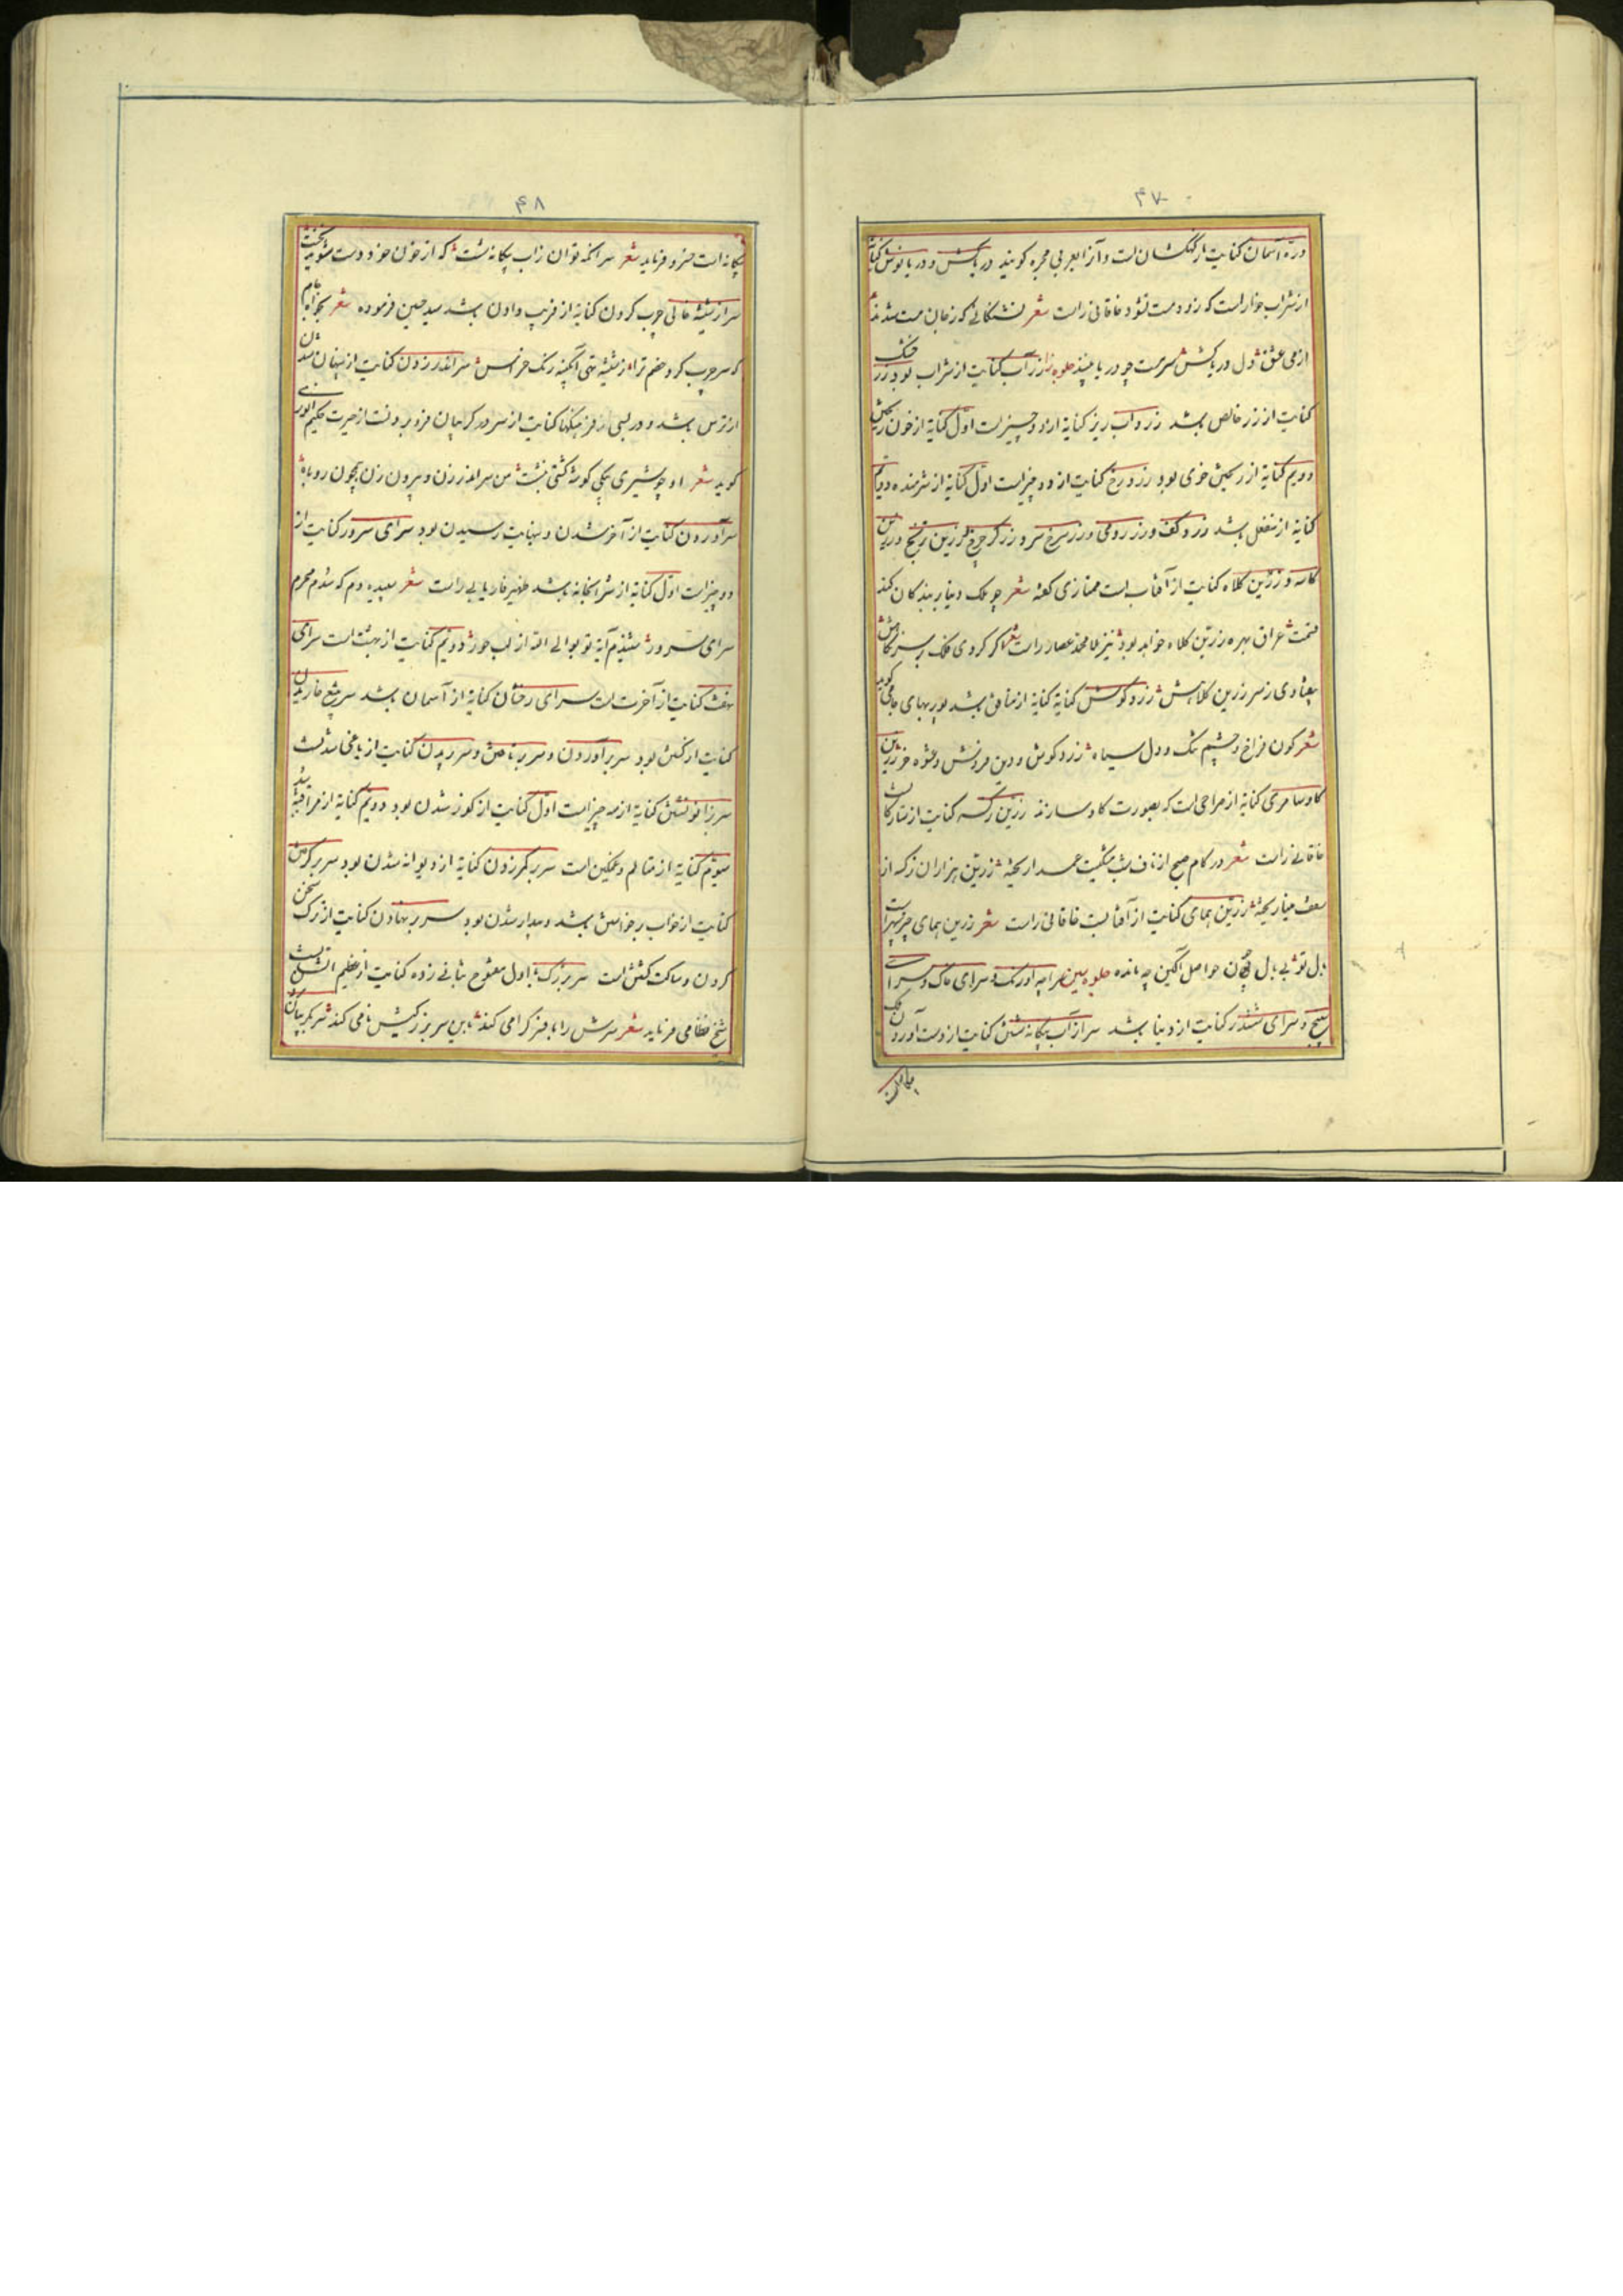 ۴۷
دره آسمان کنایت از کهکشان است و آنرا بعربی مجره کویند دریاکش و دریانوش کنایة
از شراب خوار است که زود مست نشود خاقانی راست شعر تشنکانی که زجان مست شدند
از می عشق تو دل دریاکش سرمست چو دریا بینند جلوه زا زرآب کنایت از شراب بود زر خشک
کنایت از زر خالص باشد زرد آب ریز کنایة از دو چیز است اول کنایة از خون ریختن
دویم کنایة از ریختن خوی بود زرد رخ کنایت از دو چیز است اول کنایة از شرمنده دویم
کنایة از منفعل باشد زرد کف و زر رومی و زر سرخ سر و زر کر چرخ و زرین ترنج و زرین
کاسه و زرین کلاه کنایت از آفتاب است ممتازی کفته شعر چو ملک دینار بند کان کند
قسمت عراق بهره زرین کلاه خواهد بود نیز ملا محمد عصار راست شعر اکر کردی فلک بر سر نکاهش
بیفتادی ز سر زرین کلاهش زرد کوش کنایة از منافق باشد پور بهای جامی کوید
شعر کون فراخ و چشم تنک و دل سیاه زرد کوش و دین فروش و عشوه خر زرین
کاو سامری کنایة از صراحی است که بصورت کاو سازند زرین نرکسه کنایت از ستارکان است
خاقانی راست شعر در کام صبح از ناف شب مشکست عمدا ریخته زرین هزاران نرکسه از
سقف مینا ریخته زرین همای کنایت از آفتابست خاقانی راست شعر زرین همای چتر سپهر است
بل تو بی بل چون حواصل آکین چه مانده جلوه سین سراچه آدرنک و سرای خاک و سرای
سپنج و سرای ششدر کنایت از دنیا باشد سر از آب بیکانه شستن کنایت از دست آوردن
بیکانه است
۴۸
بیکانه است خسرو فرماید شعر سر آنکه توان زاب بیکانه شست که از خون خود دست شوید نخست
سر از شیشه خالی چرب کردن کنایة از فریب دادن باشد سید حسین فرموده شعر
که سر چرب کرد خصم ترا از شیشه تهی آبکینه رنک سر اندر زدن کنایت از پنهان شدن
از ترس باشد و در بعضی از فرهنکها کنایت از سر در کریبان فرو بردنست از حیرت حکیم انوری
کوید شعر او چو شیری بیکی کوشه کشتی بنشست من سر اندر زن و بیرون زن همچون روباه
سرآوردن کنایت از آخر شدن و نهایت رسیدن بود سرای سرور کنایت از
دو چیز است اول کنایة از شرابخانه باشد ظهیر فاریابی راست شعر سپیده دم که شدم محرم
سرای سرور شنیدم آیة توبوا الی الله از لب حور دویم کنایت از بهشت است سرای
نهفت کنایت از آخرت است سرای رختان کنایة از آسمان باشد سر بتیغ خاریدن
کنایت از کشتن بود سر برآوردن و سر بر تافتن و سر بریدن کنایت از یاغی شدنست
سر بزانو نشستن کنایة از سه چیز است اول کنایت از کوز شدن بود دویم کنایة از مراقبه باشد
سیوم کنایة از متالم و غمکین است سر بر کمر زدن کنایة از دیوانه شدن بود سر بر کرفتن
کنایت از خواب برخواستن باشد و بیدار شدن بود سر بر نهادن کنایت از ترک سخن
کردن و ساکت کشتن است سر بزرک باول مفتوح بثانی زده کنایت از عظیم الشان است
شیخ نظامی فرماید شعر سرش را بافسر کرامی کند بدین سر بزرکیش نامی کند سر بکریبان